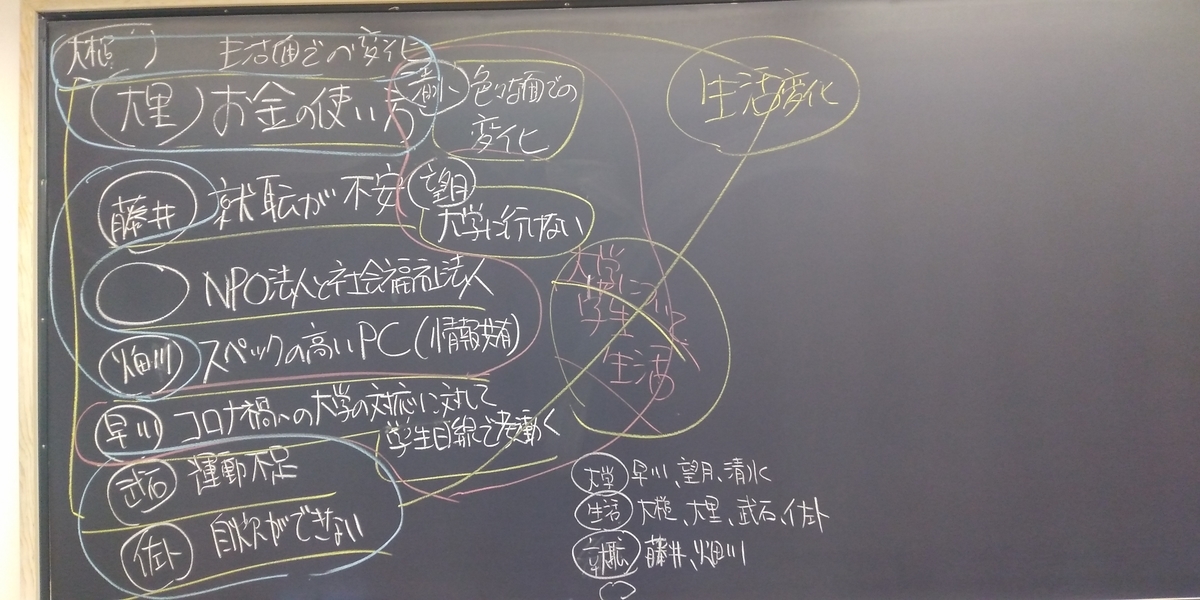 大槌 生活面での変化
大里 お金の使い方
清水 色々な面での
変化
藤井 就転が不安
望月
大学に行けない
NPO法人と社会福祉法人
畑川 スペックの高いPC(情報共有)
早川 コロナ禍への大学の対応に対して
学生目線で考働く
武石 運動不足
佐卦 自炊ができない
生活変化
大学
学生
生活
大学 早川、望月、清水
生活 大槌、大里、武石、佐卦
就転 藤井、畑川